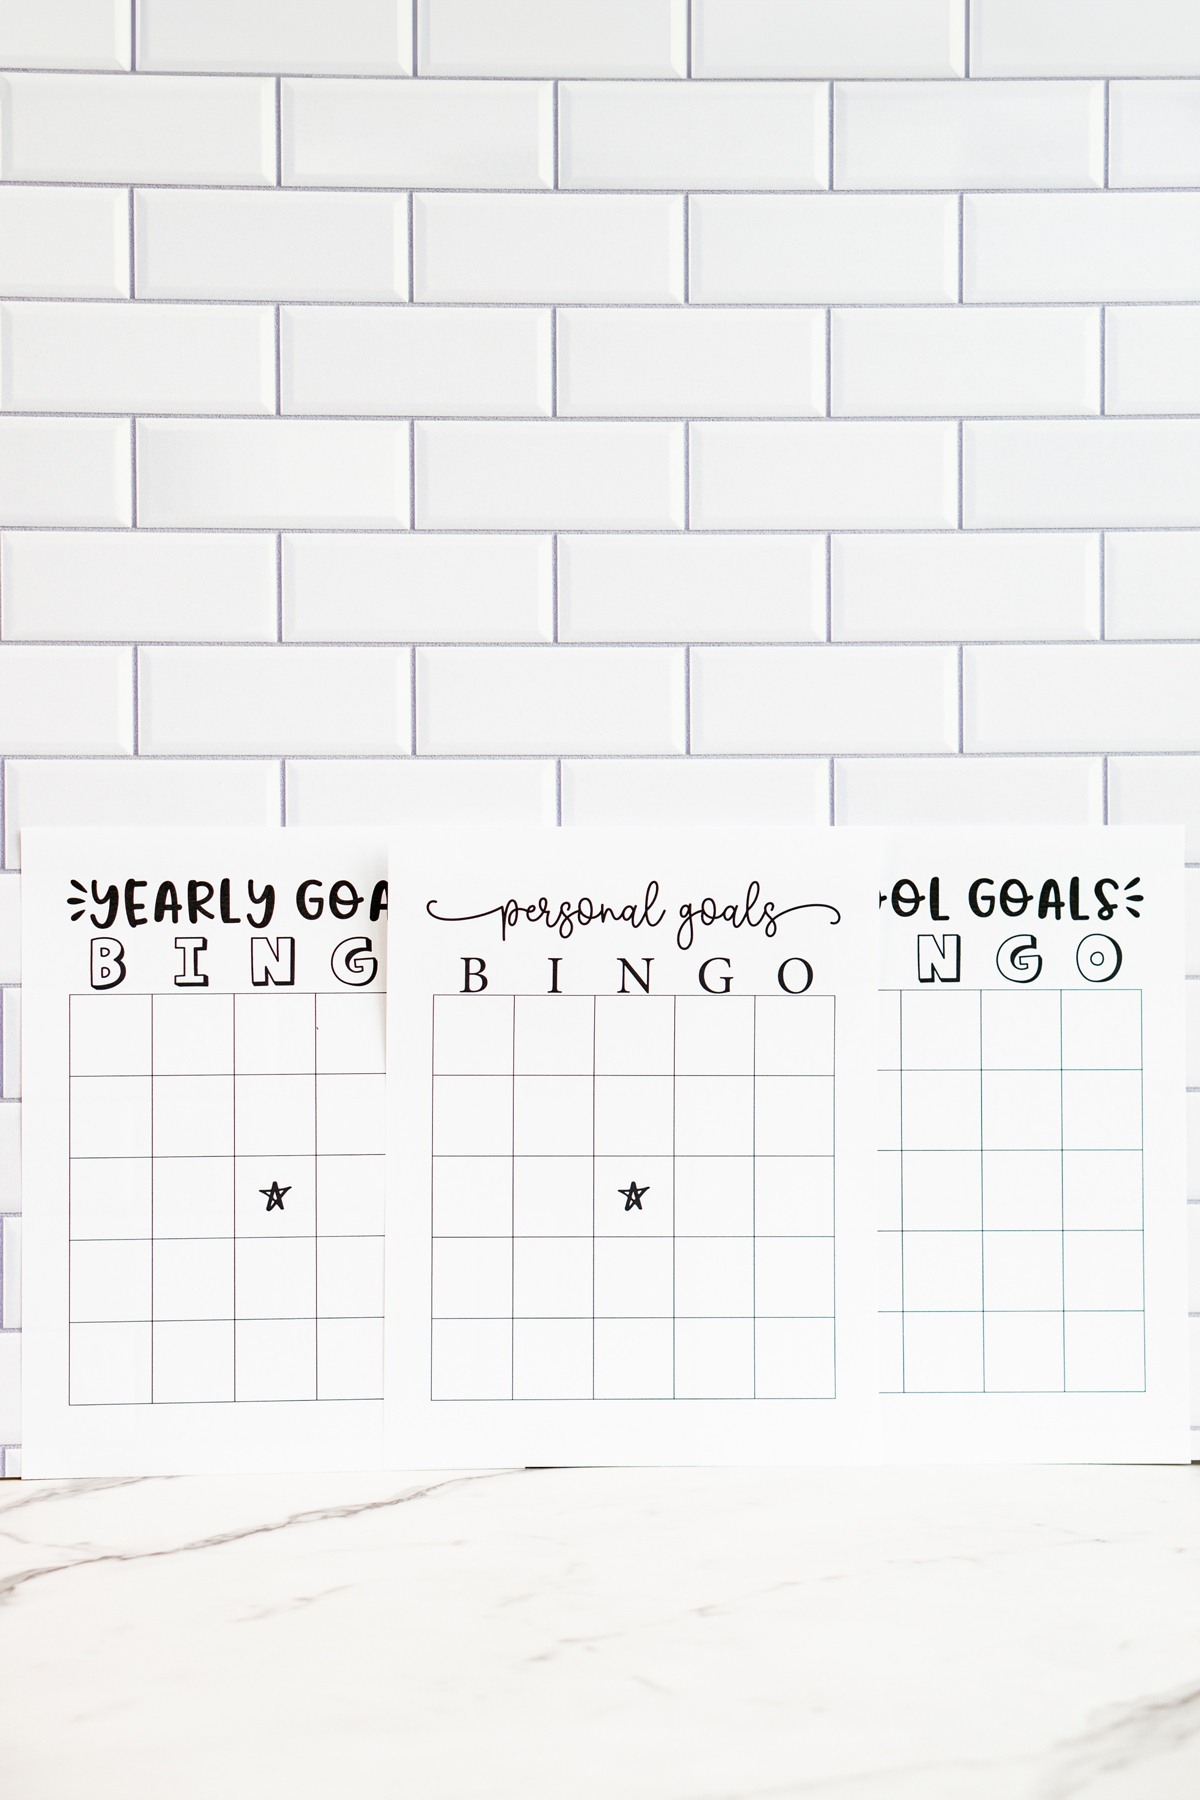 YEARLY GOA
B I N G
personal goals
B I N G O
OL GOALS
N G O